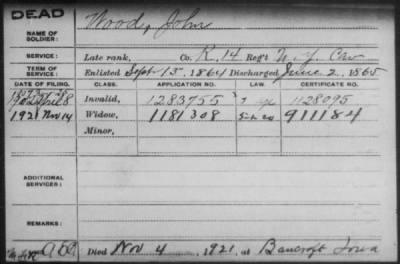 DEAD
NAME OF SOLDIER: Wood, John
SERVICE: Late rank, Co. K. 14 Reg't N. Y. Cav
TERM OF SERVICE: Enlisted Sept 13, 1864 Discharged June 2, 1865
DATE OF FILING. CLASS. APPLICATION NO. LAW. CERTIFICATE NO.
Invalid, 1283755 1128095
1921 Nov 14 Widow, 1181308 911184
Minor,
ADDITIONAL SERVICES:
REMARKS:
Died Nov 4, 1921, at Bancroft Iowa